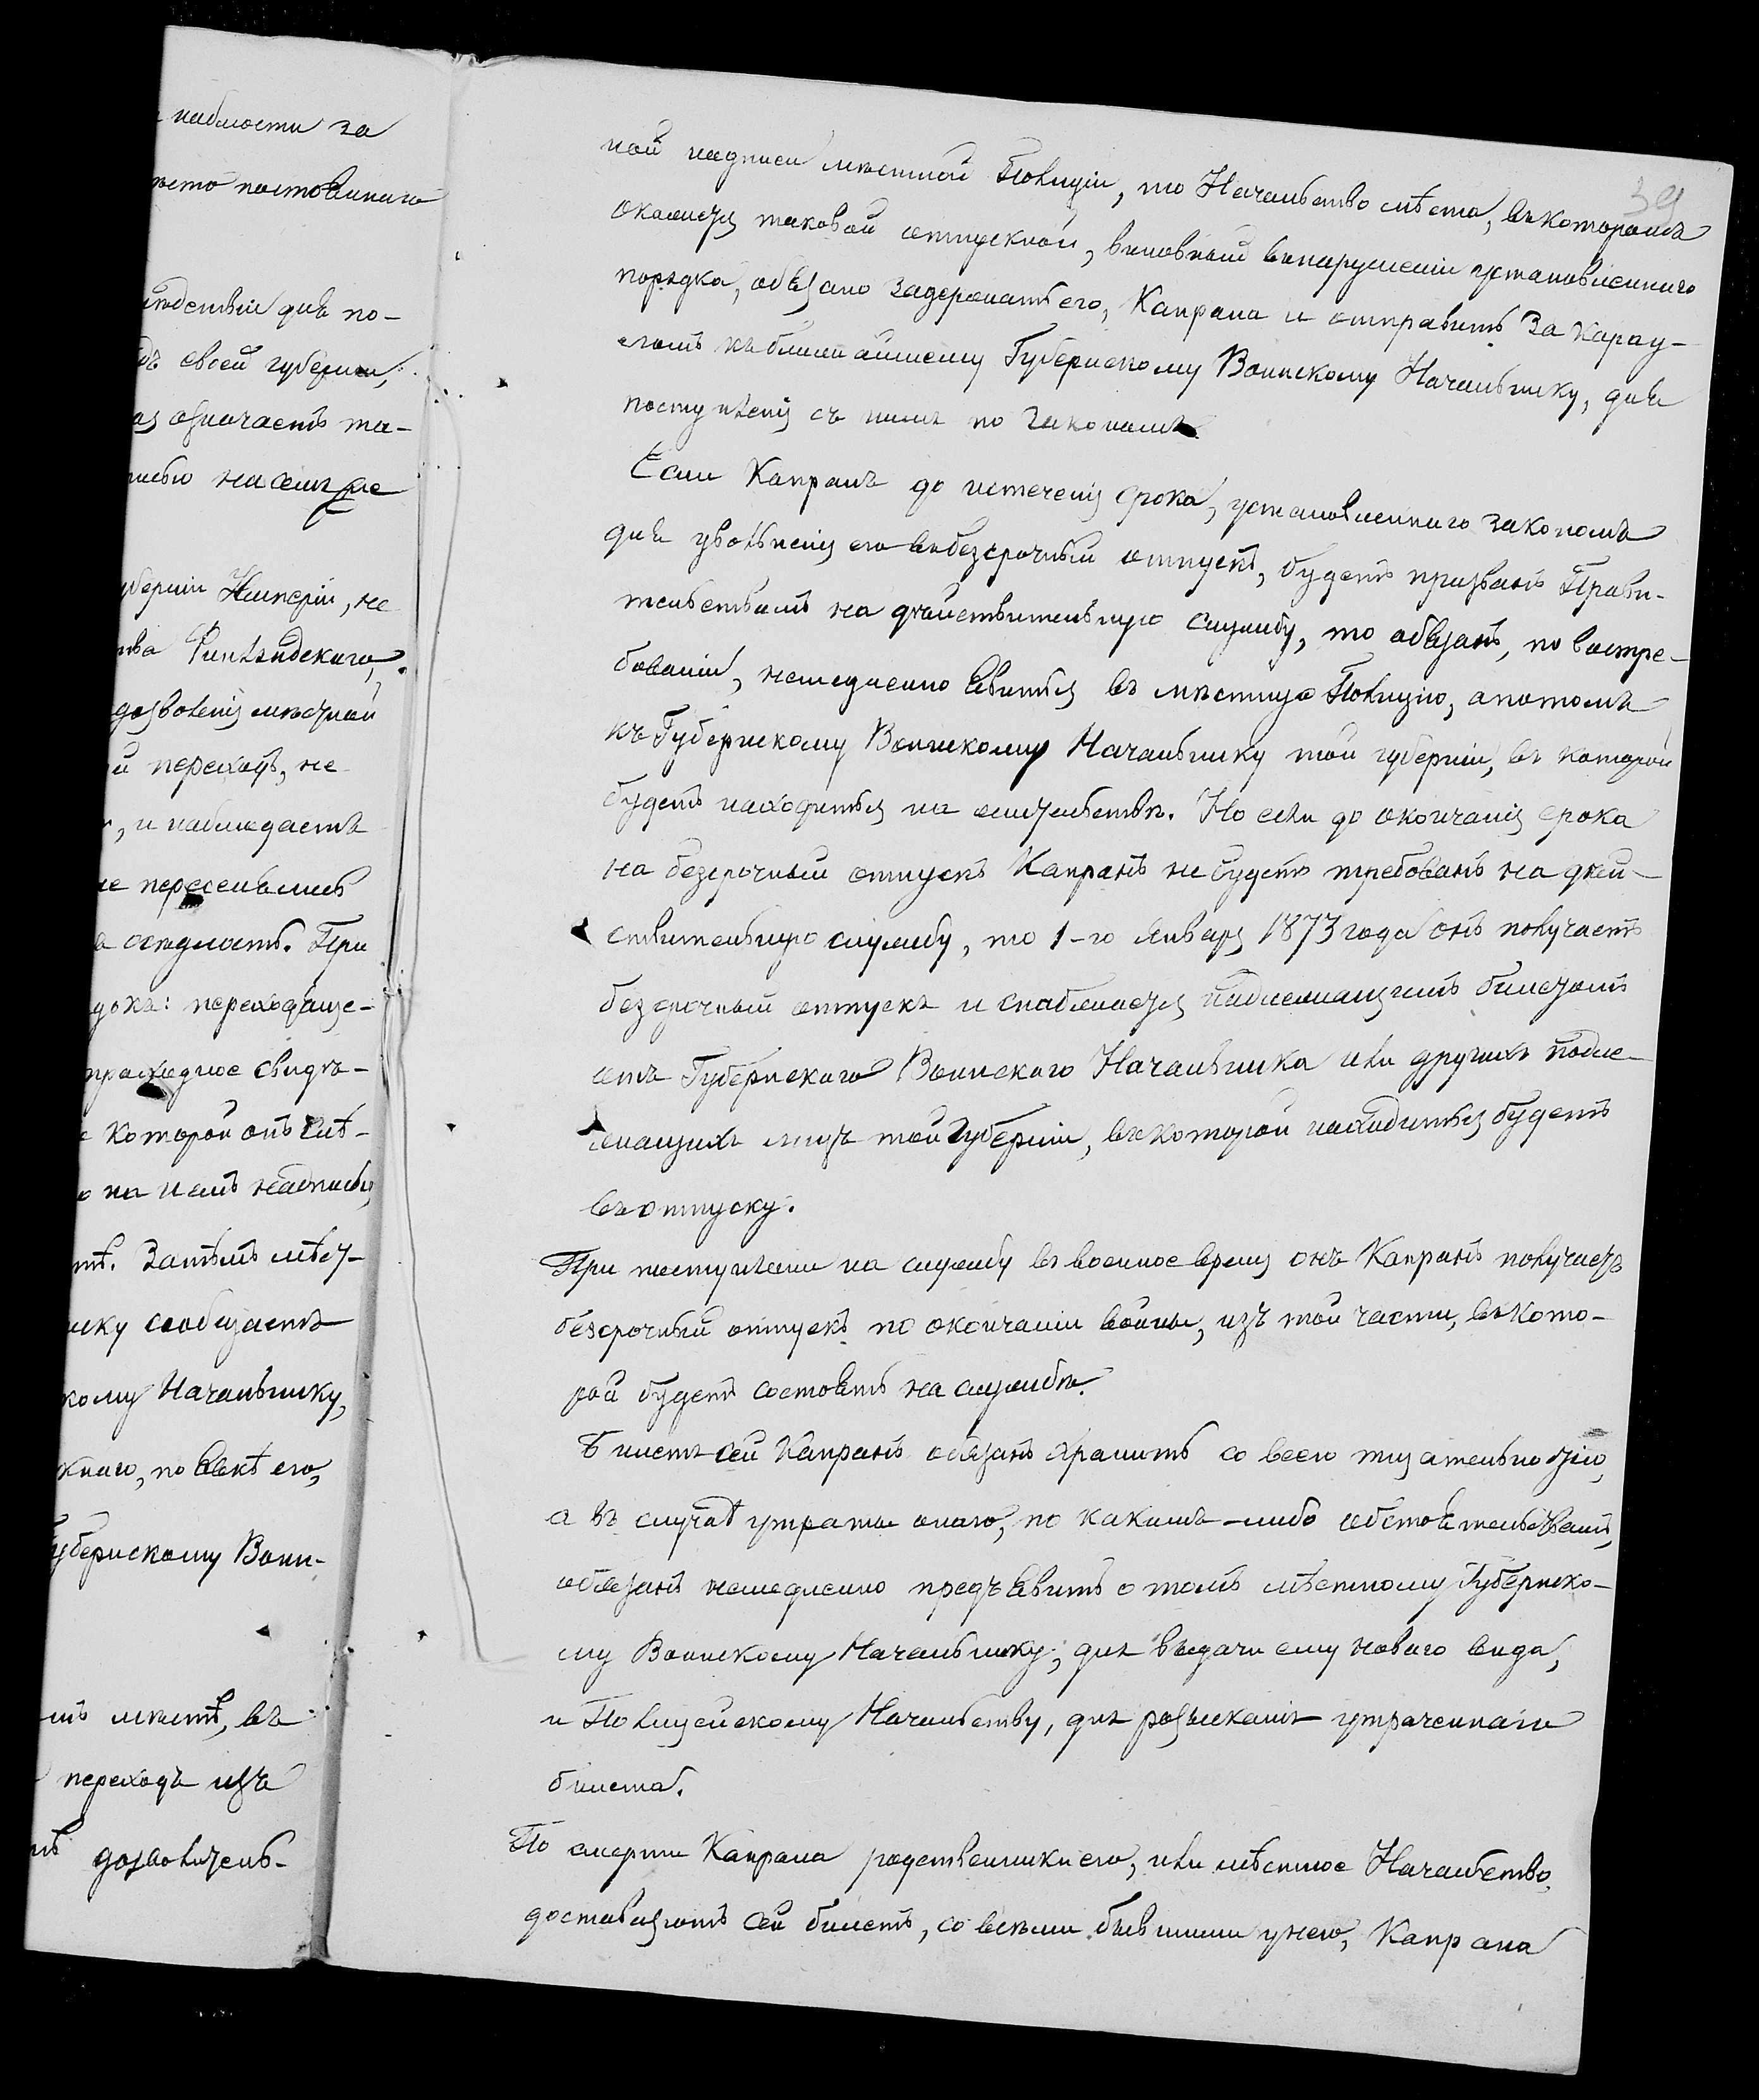 наблюсти за
постояннаго
для по-
своей губерніи,
означаетъ та-
на семъ же
Имперіи, не
Финляндскаго,
дозволенія мѣстной
переходъ, не
, и наблюдаетъ
переселялись
осѣдлость. При
: переходяще-
проходное свидѣ-
которой онъ слѣ-
на немъ надпись
. Затѣмъ мѣст-
сообщаетъ
Начальнику,
, по явкѣ его,
Губернскому Воин-
мѣстѣ, въ
переходъ изъ
дозволитель-
39
ной надписи мѣстной Полиціи, то Начальство мѣста, въ которомъ
окажется таковой отпускной, виновный въ нарушеніи установленнаго
порядка, обязано задержать его, Капрана и отправить за карау-
ломъ къ ближайшему Губернскому Воинскому Начальнику, для
поступленія съ нимъ по законамъ.
Если Капранъ до истеченія срока, установленнаго закономъ
для увольненія его въ безсрочный отпускъ, будетъ призванъ Прави-
тельствомъ на дѣйствительную службу, то обязанъ, по востре-
бованіи, немедленно явиться въ мѣстную Полицію, а потомъ
къ Губернскому Воинскому Начальнику той губерніи, въ которой
будетъ находиться на жительствѣ. Но если до окончанія срока
на безсрочный отпускъ Капранъ не будетъ требованъ на дѣй-
ствительную службу, то 1-го Января 1873 года онъ получаетъ
безсрочный отпускъ и снабжается надлежащимъ билетомъ
отъ Губернскаго Воинскаго Начальника или другихъ подле-
жащихъ лицъ той Губерніи, въ которой находиться будетъ
въ отпуску.
При поступленіи на службу въ военное время онъ Капранъ получаетъ
безсрочный отпускъ по окончаніи войны, изъ той части, въ кото-
рой будетъ состоять на службѣ.
Билетъ сей Капранъ обязанъ хранить со всею тщательностію,
а въ случаѣ утраты онаго, по какимъ-либо обстоятельствамъ,
обязанъ немедленно предъявить о томъ мѣстному Губернско-
му Воинскому Начальнику, для выдачи ему новаго вида,
и Полицейскому Начальству, для розысканія утраченнаго
билета.
По смерти Капрана родственники его, или мѣстное Начальство,
доставляютъ сей билетъ, со всѣми бывшими у него, Капрана